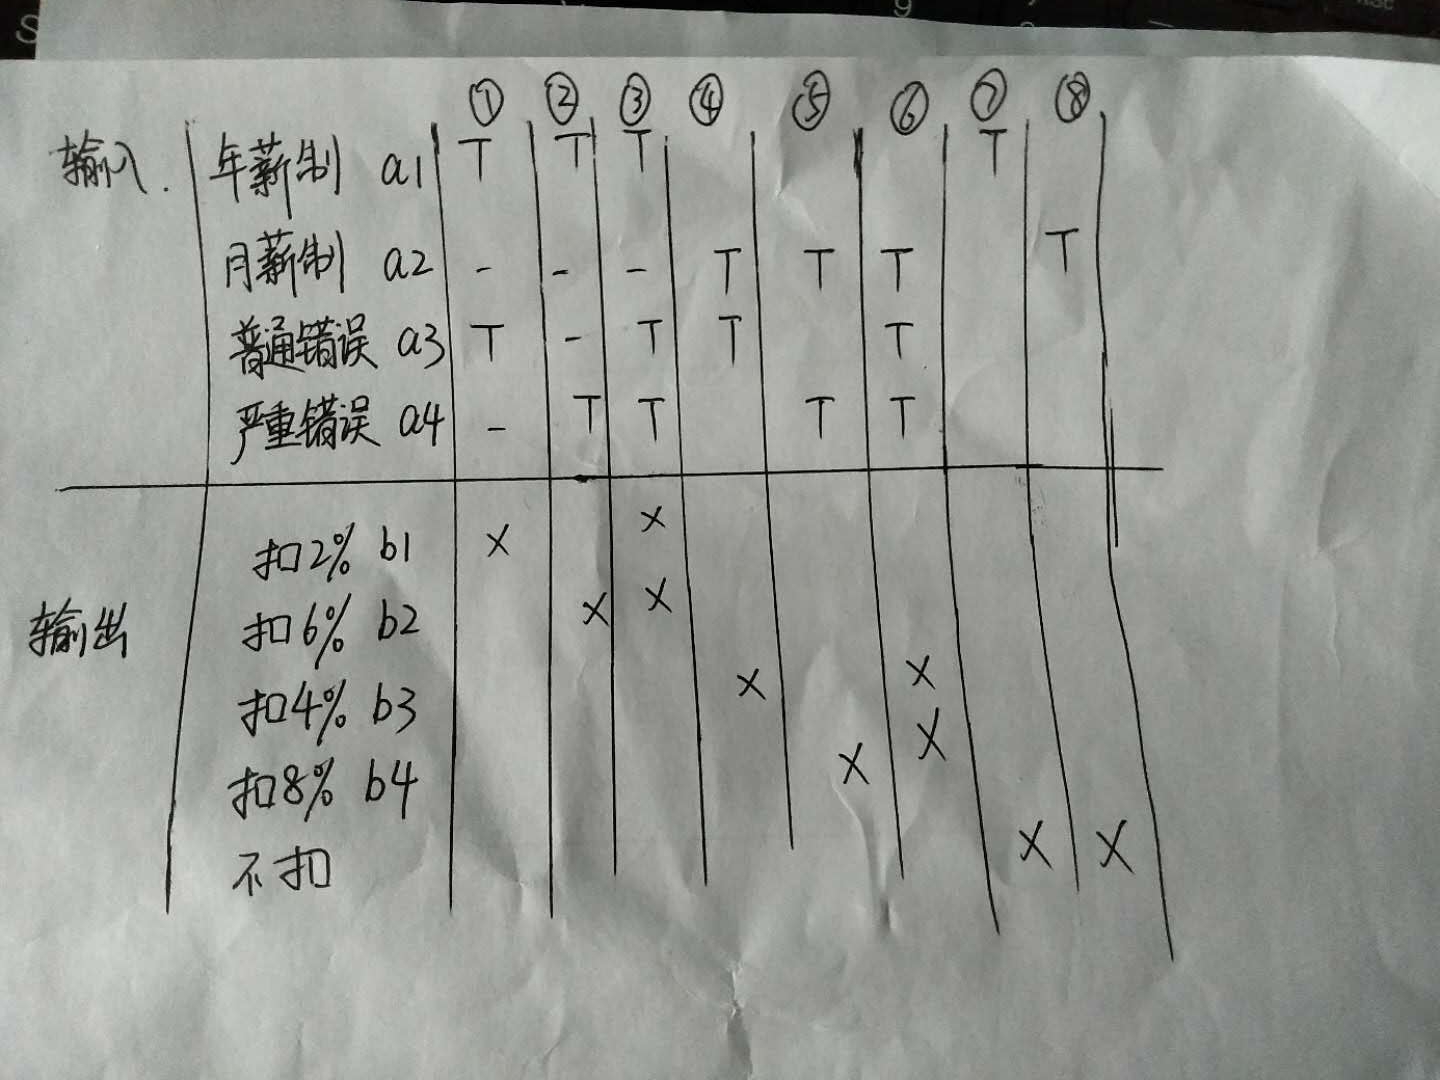 ① ② ③ ④ ⑤ ⑥ ⑦ ⑧
输入. 年薪制 a1 T T T T
月薪制 a2 - - - T T T T
普通错误 a3 T - T T T
严重错误 a4 - T T T T
扣2% b1 × ×
输出 扣6% b2 × ×
扣4% b3 × ×
扣8% b4 × ×
不扣 × ×